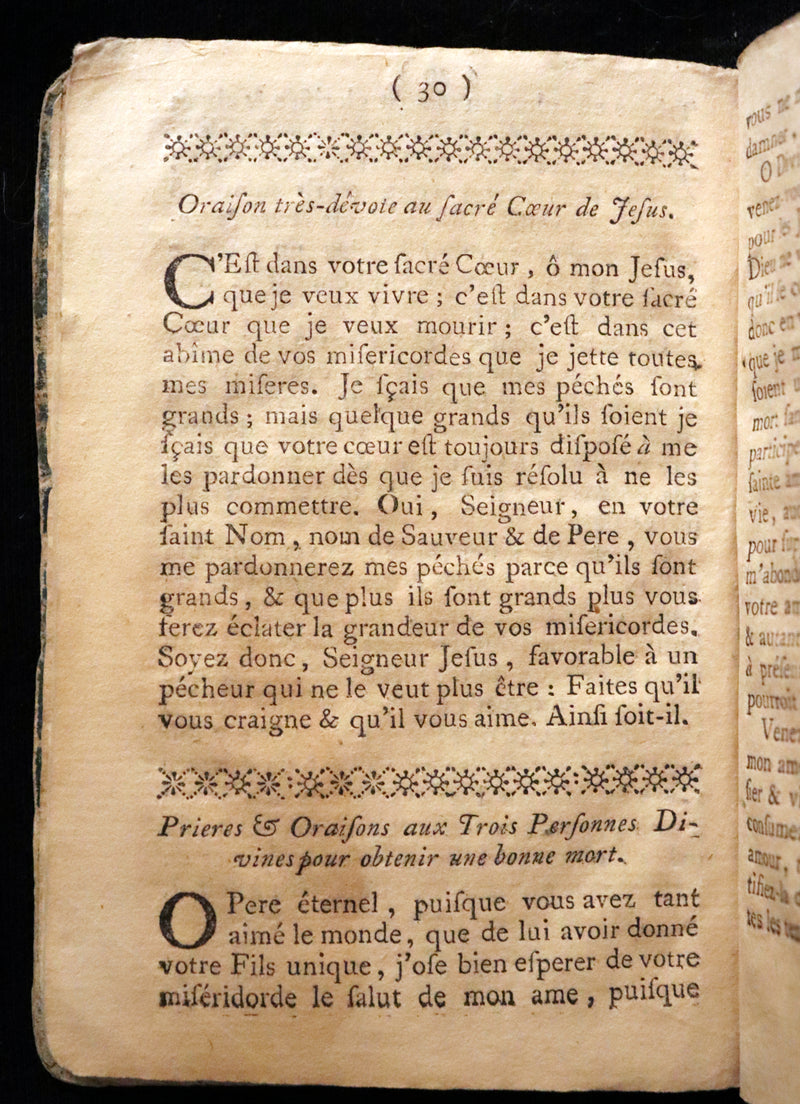 ( 30 )
Oraiſon très-dévote au ſacré Cœur de Jeſus.
C'Eſt dans votre ſacré Cœur , ô mon Jeſus,
que je veux vivre ; c'eſt dans votre ſacré
Cœur que je veux mourir ; c'eſt dans cet
abîme de vos miſericordes que je jette toutes
mes miſeres. Je ſçais que mes péchés ſont
grands ; mais quelque grands qu'ils ſoient je
ſçais que votre cœur eſt toujours diſpoſé à me
les pardonner dès que je ſuis réſolu à ne les
plus commettre. Oui , Seigneur , en votre
ſaint Nom , nom de Sauveur & de Pere , vous
me pardonnerez mes péchés parce qu'ils ſont
grands , & que plus ils ſont grands plus vous
ferez éclater la grandeur de vos miſericordes.
Soyez donc , Seigneur Jeſus , favorable à un
pécheur qui ne le veut plus être : Faites qu'il
vous craigne & qu'il vous aime. Ainſi ſoit-il.
Prieres & Oraiſons aux Trois Perſonnes Di-
vines pour obtenir une bonne mort.
O Pere éternel , puiſque vous avez tant
aimé le monde , que de lui avoir donné
votre Fils unique , j'oſe bien eſperer de votre
miſéridorde le ſalut de mon ame , puiſque
vous ne
O
pour
qu'il
donc en
que je
ſoient
mor
ſainte
vie,
pour
votre
&
à
mon am
& v
amour,